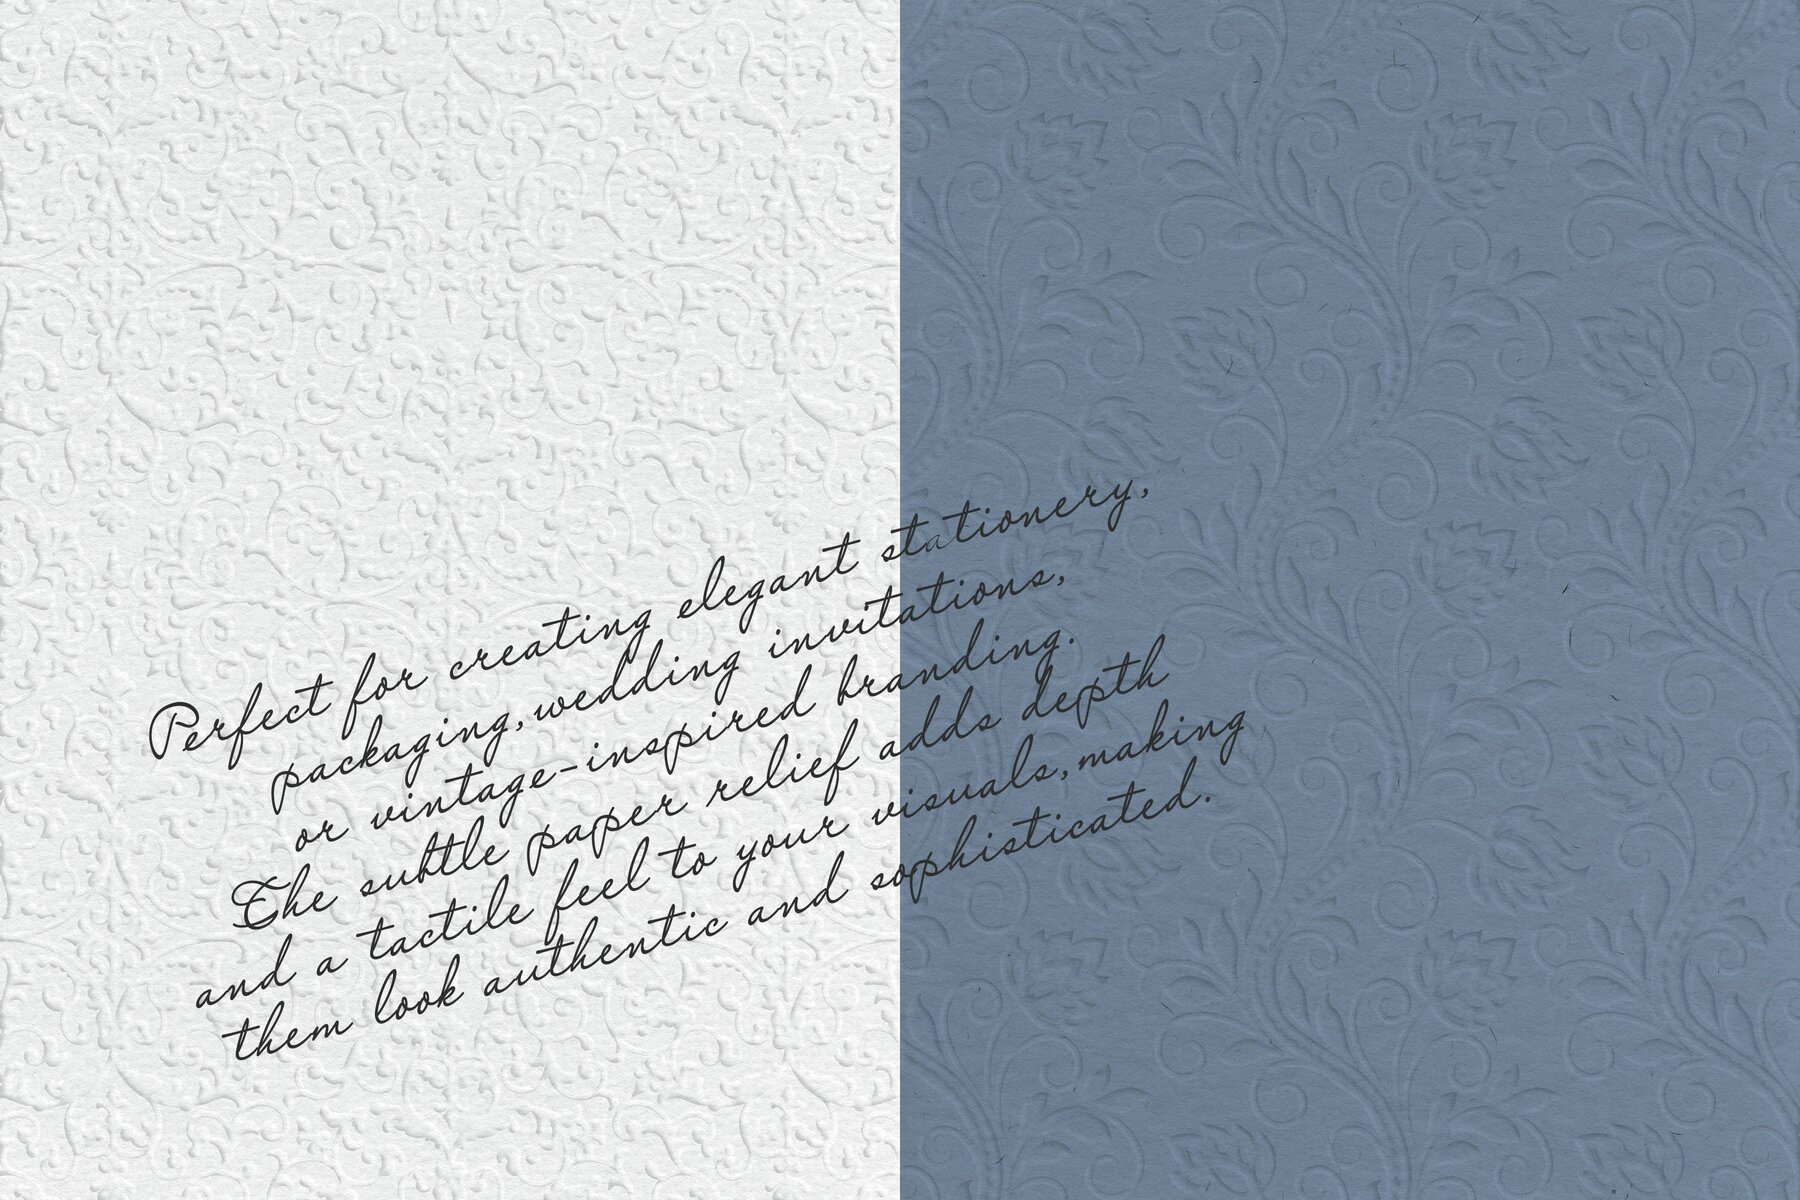 Perfect for creating elegant stationery,
packaging, wedding invitations,
or vintage-inspired branding.
The subtle paper relief adds depth
and a tactile feel to your visuals, making
them look authentic and sophisticated.